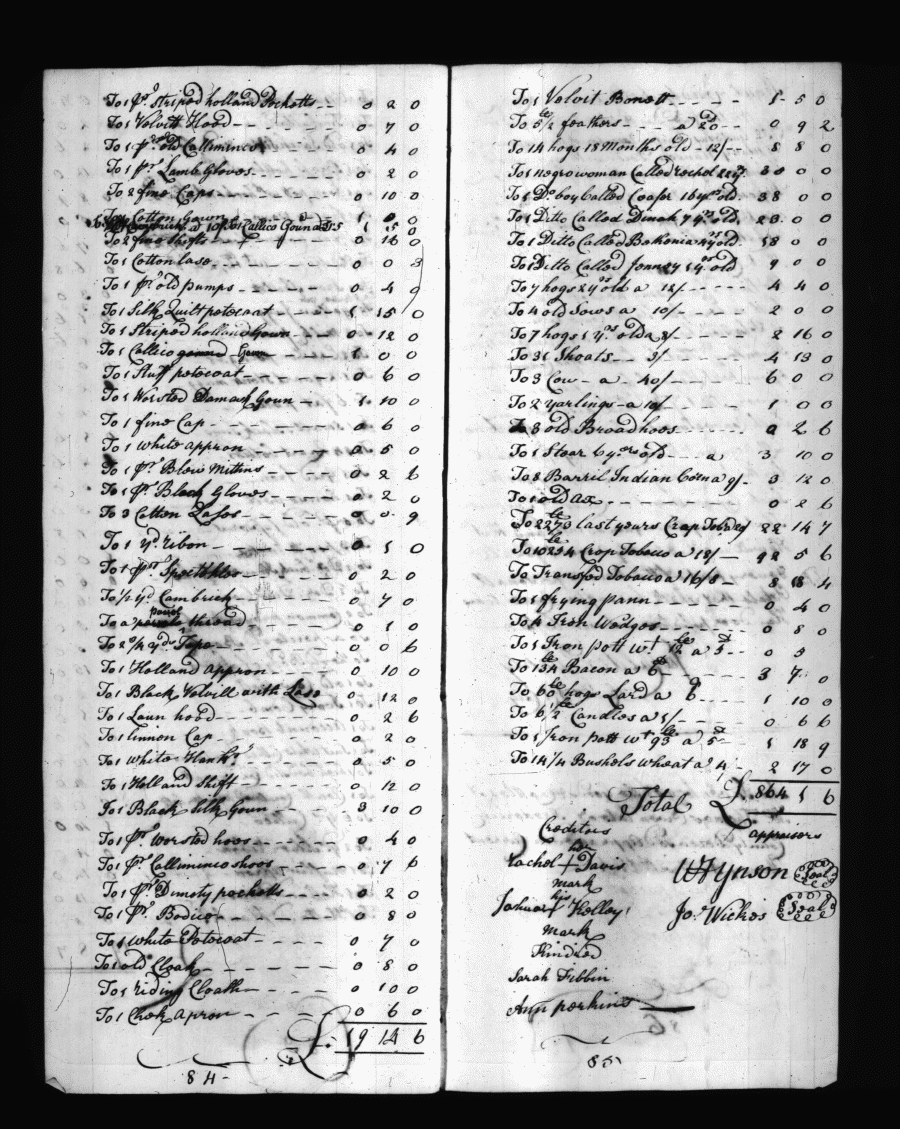 To 1 pr. Striped holland Pocketts -- 0 2 0
To 1 Velvitt Hood -- 0 7 0
To 1 pr. old Calliminco -- 0 4 0
To 1 pr. Lamb Gloves -- 0 2 0
To 2 fine Caps -- 0 10 0
Cotton Gown -- 1 0 0
Cambrick a 10/ To 1 Callico Goun a 1 5 0
To 2 fine Shifts -- 0 16 0
To 1 Cotton lase -- 0 0 3
To 1 pr. old pumps -- 0 4 0
To 1 Silk Quilt petecoat -- 1 15 0
To 1 Striped holland Goun -- 0 12 0
To 1 Callico Goun -- 1 0 0
To 1 Stuff petecoat -- 0 6 0
To 1 Worsted Damask Goun -- 1 10 0
To 1 fine Cap -- 0 6 0
To 1 white appron -- 0 5 0
To 1 pr. Blew Mittins -- 0 2 6
To 1 pr. Black Gloves -- 0 2 0
To 3 Cotton Lases -- 0 0 9
To 1 yd. ribon -- 0 1 0
To 1 pr. Spectekles -- 0 2 0
To 1/2 yd. Cambrick -- 0 7 0
To a parcel thread 0 1 0
To 2 3/4 yds Tape -- 0 0 6
To 1 Holland appron -- 0 10 0
To 1 Black Velvitt with Lase 0 12 0
To 1 Laun hood -- 0 2 6
To 1 linnen Cap -- 0 2 0
To 1 white Hankr. -- 0 5 0
To 1 Holland Shift -- 0 12 0
To 1 Black Silk Goun 3 10 0
To 1 pr. worsted hoos -- 0 4 0
To 1 pr. Calliminco shoos -- 0 7 6
To 1 pr. Dimety pocketts -- 0 2 0
To 1 pr. Bodice -- 0 8 0
To 1 white Petecoat -- 0 7 0
To 1 old Cloak -- 0 8 0
To 1 riding Cloath -- 0 10 0
To 1 Chek apron -- 0 6 0
£: 19 14 6
84
To 1 Velvit Bonett -- 1 5 0
To 5 1/2 le feathers -- a 20 -- 0 9 2
To 14 hogs 18 Months old - 12/-- 8 8 0
To 1 negro woman Called rochel 30 0 0
To 1 Do. boy Called Ceasor 16 yrs old 38 0 0
To 1 Ditto Called Dinah 7 yrs old 23 0 0
To 1 Ditto Called Bohonia 4 yrs old 18 0 0
To Ditto Called Jenney 1 yrs old 9 0 0
To 7 hogs 2 yrs old a 12/-- 4 4 0
To 4 old Sows a 10/-- 2 0 0
To 7 hogs 1 yrs old a 8/-- 2 16 0
To 31 Shoats -- 3/ 4 13 0
To 3 Cow - a - 40/-- 6 0 0
To 2 yarlings - a 10/-- 1 0 0
To 3 old Broad hoos -- 0 2 6
To 1 Stear 6 years old -- a 3 10 0
To 8 Barril Indian Corn a 9/- 3 12 0
To 1 old ax -- 0 2 6
To 2273 le last years Crop Tob. 22 14 7
To 10254 le Crop Tobacco a 18/-- 92 5 6
To Transfd Tobacco a 16/8 -- 8 18 4
To 1 frying pann -- 0 4 0
To 4 Iron Wedges -- 0 8 0
To 1 Iron pott wt. 12 le a 5d -- 0 5
To 134 le Bacon a 6d 3 7 0
To 60 le hogs Lard a 6 1 10 0
To 6 1/2 le Candles a 1/ -- 0 6 6
To 1 Iron pott wt 93 le a 5d -- 1 18 9
To 14 1/4 Bushels wheat a 4/ - 2 17 0
Total £ 864 1 6
Creditors
appraisers
her
Rachel + Davis
mark
WHynson Seal
his
Joshua + Holley
mark
Jo. Wickes Seal
Kindred
Sarah Fibbin
Ann perkins
85